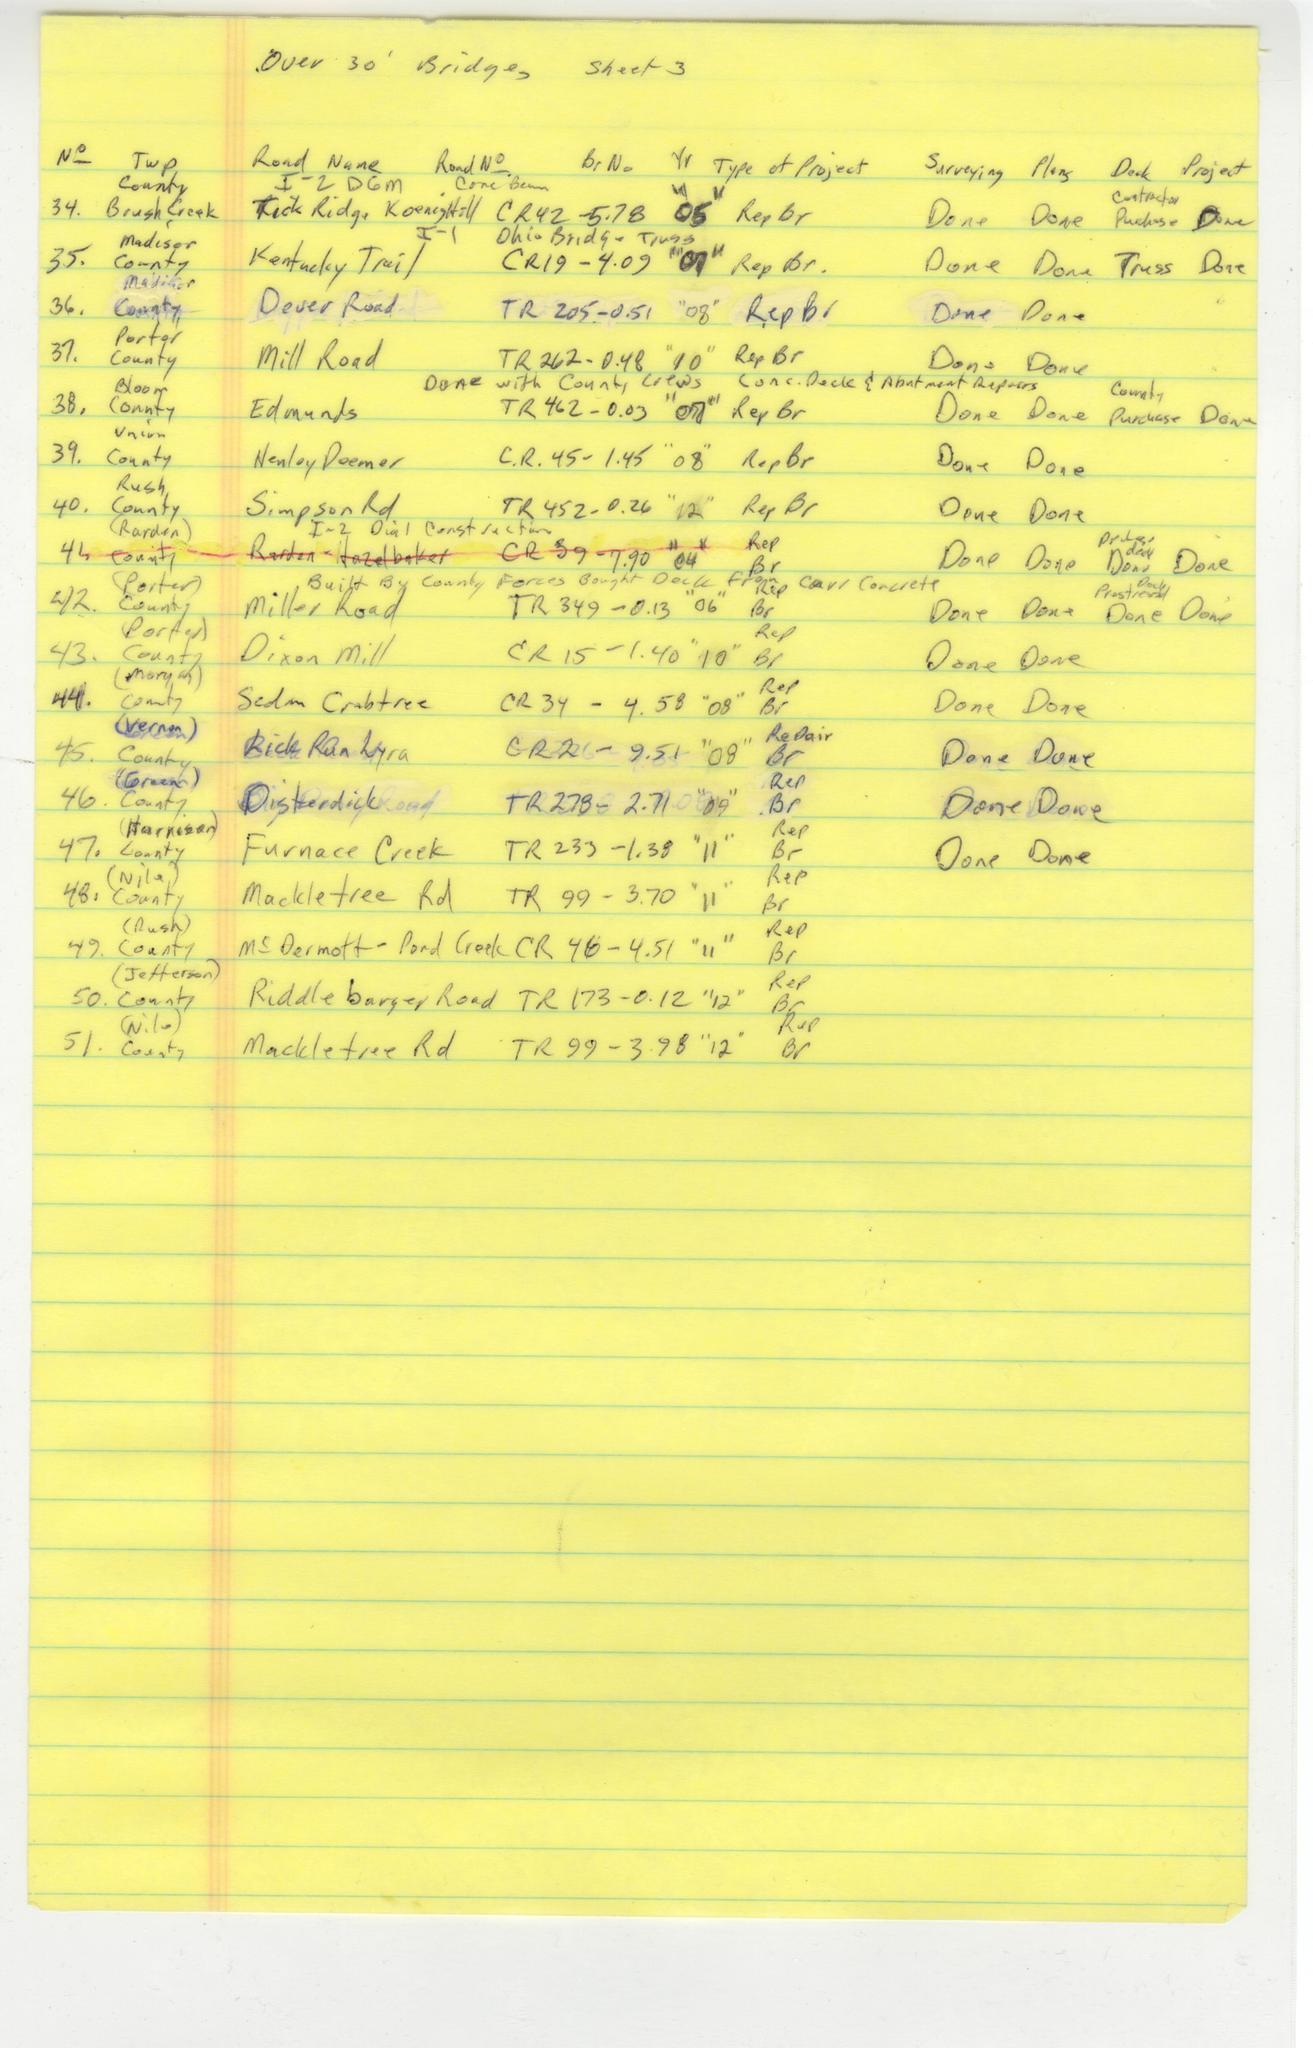 Over 30' Bridges Sheet 3
No Twp Road Name Road No Br No. Yr Type of Project Surveying Plans Deck Project
County I-2 DGM Conc Beam Contractor
34. Brush Creek Tick Ridge Koenig Hill CR42 -5.78 "05" Rep Br Done Done Purchase Done
Madison I-1 Ohio Bridge - Truss
35. County Kentucky Trail CR19 - 4.09 "07" Rep Br. Done Done Truss Done
Madison
36. County Dever Road TR 205-0.51 "08" Rep Br Done Done
Porter
37. County Mill Road TR 262-0.48 "10" Rep Br Done Done
Bloom Done with County Crews Conc. Deck & Abutment Repairs County
38. County Edmunds TR 462-0.03 "07" Rep Br Done Done Purchase Done
Union
39. County Henley Deemer C.R. 45-1.45 "08" Rep Br Done Done
Rush
40. County Simpson Rd TR 452-0.26 "12" Rep Br Done Done
(Rarden) I-2 Dial Construction Rep deck
41. County Rarden - Hazelbaker CR 39-7.90 "04" Br Done Done Done Done
(Porter) Built By County Forces Bought Deck From Carr Concrete Rep Deck
42. County Miller Road TR 349-0.13 "06" Br Done Done Done Done
(Porter) Rep
43. County Dixon Mill CR 15-1.40 "10" Br Done Done
(Morgan) Rep
44. County Sedan Crabtree CR 34 - 4.58 "08" Br Done Done
(Vernon) Repair
45. County Lick Run Lyra CR 26 - 9.51 "08" Br Done Done
(Green) Rep
46. County Disterdick Road TR 278-2.71 "09" Br Done Done
(Harrison) Rep
47. County Furnace Creek TR 233-1.38 "11" Br Done Done
(Nile) Rep
48. County Mackletree Rd TR 99-3.70 "11" Br
(Rush) Rep
49. County McDermott - Pond Creek CR 46-4.51 "11" Br
(Jefferson) Rep
50. County Riddlebarger Road TR 173-0.12 "12" Br
(Nile) Rep
51. County Mackletree Rd TR 99-3.98 "12" Br